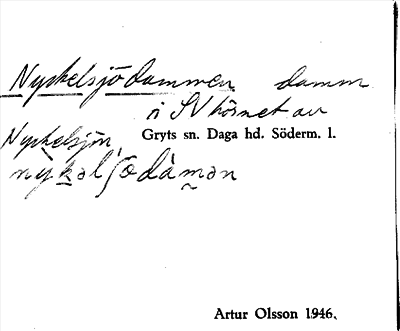 Nyckelsjödammen damm
i SV hörnet av
Nyckelsjön, Gryts sn. Daga hd. Söderm. l.
Artur Olsson 1946.